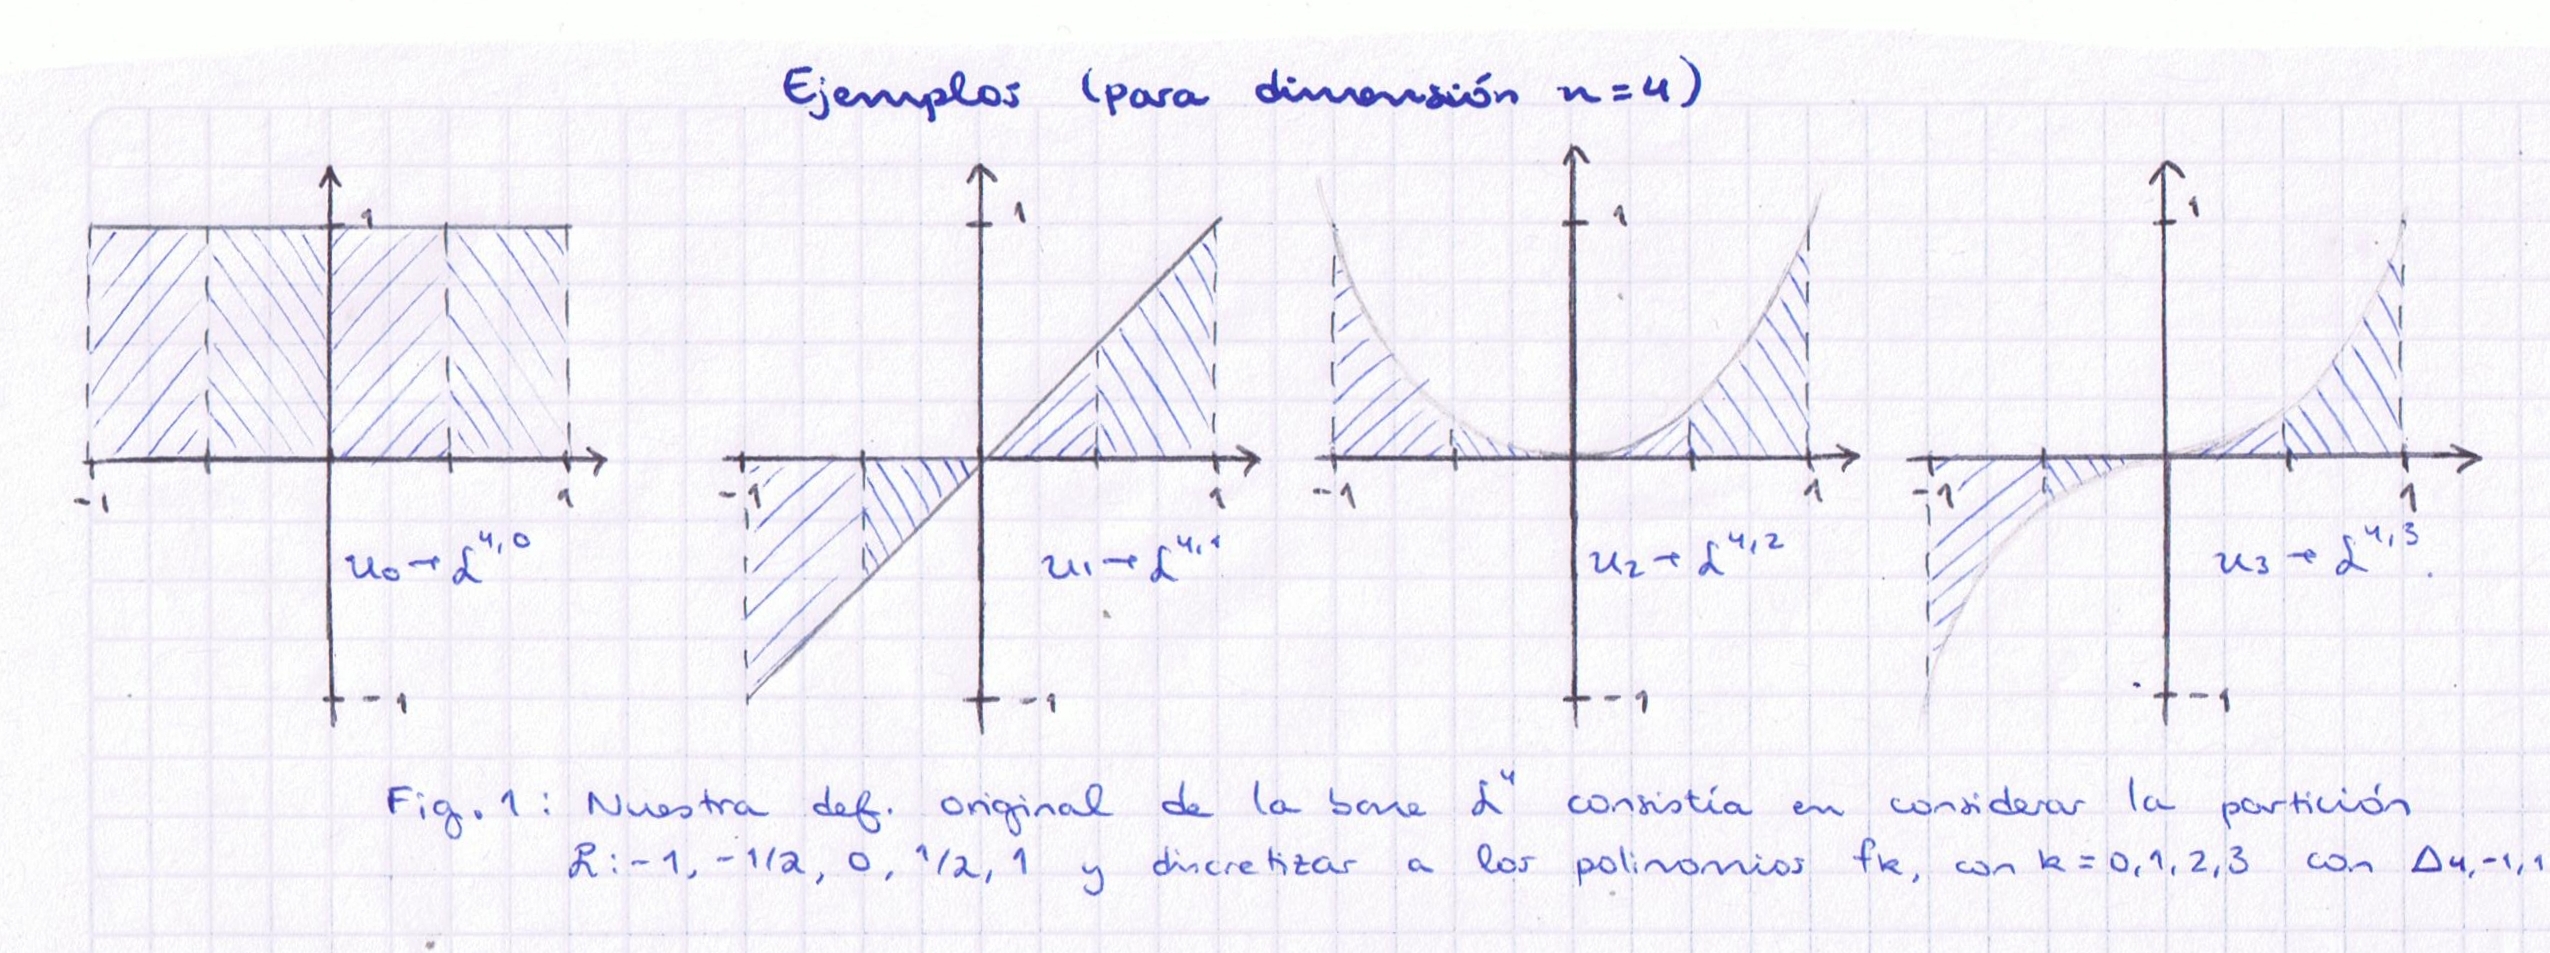 Ejemplos (para dimensión n=4)
1
1
1
1
-1
1
-1
1
-1
1
-1
1
u₀→ℒ^{4,0}
u₁→ℒ^{4,1}
u₂→ℒ^{4,2}
u₃→ℒ^{4,3}.
-1
-1
-1
-1
Fig. 1: Nuestra def. original de la base ℒ⁴ consistía en considerar la partición
P: -1, -1/2, 0, 1/2, 1 y discretizar a los polinomios fk, con k=0,1,2,3 con Δ4,-1,1